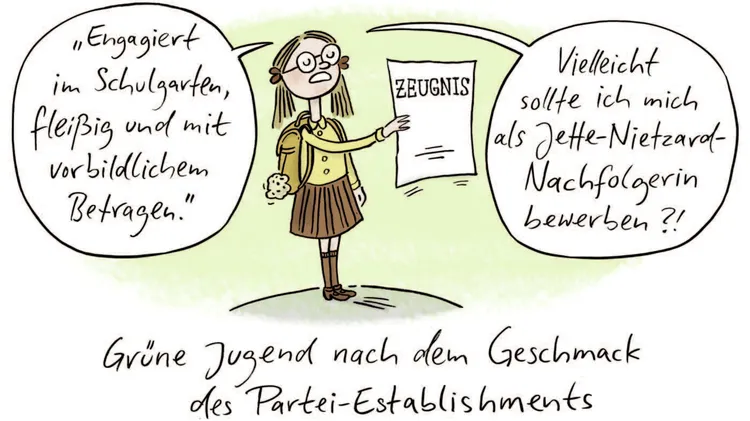 „Engagiert
im Schulgarten,
fleißig und mit
vorbildlichem
Betragen.“
ZEUGNIS
Vielleicht
sollte ich mich
als Jette-Nietzard-
Nachfolgerin
bewerben?!
Grüne Jugend nach dem Geschmack
des Partei-Establishments